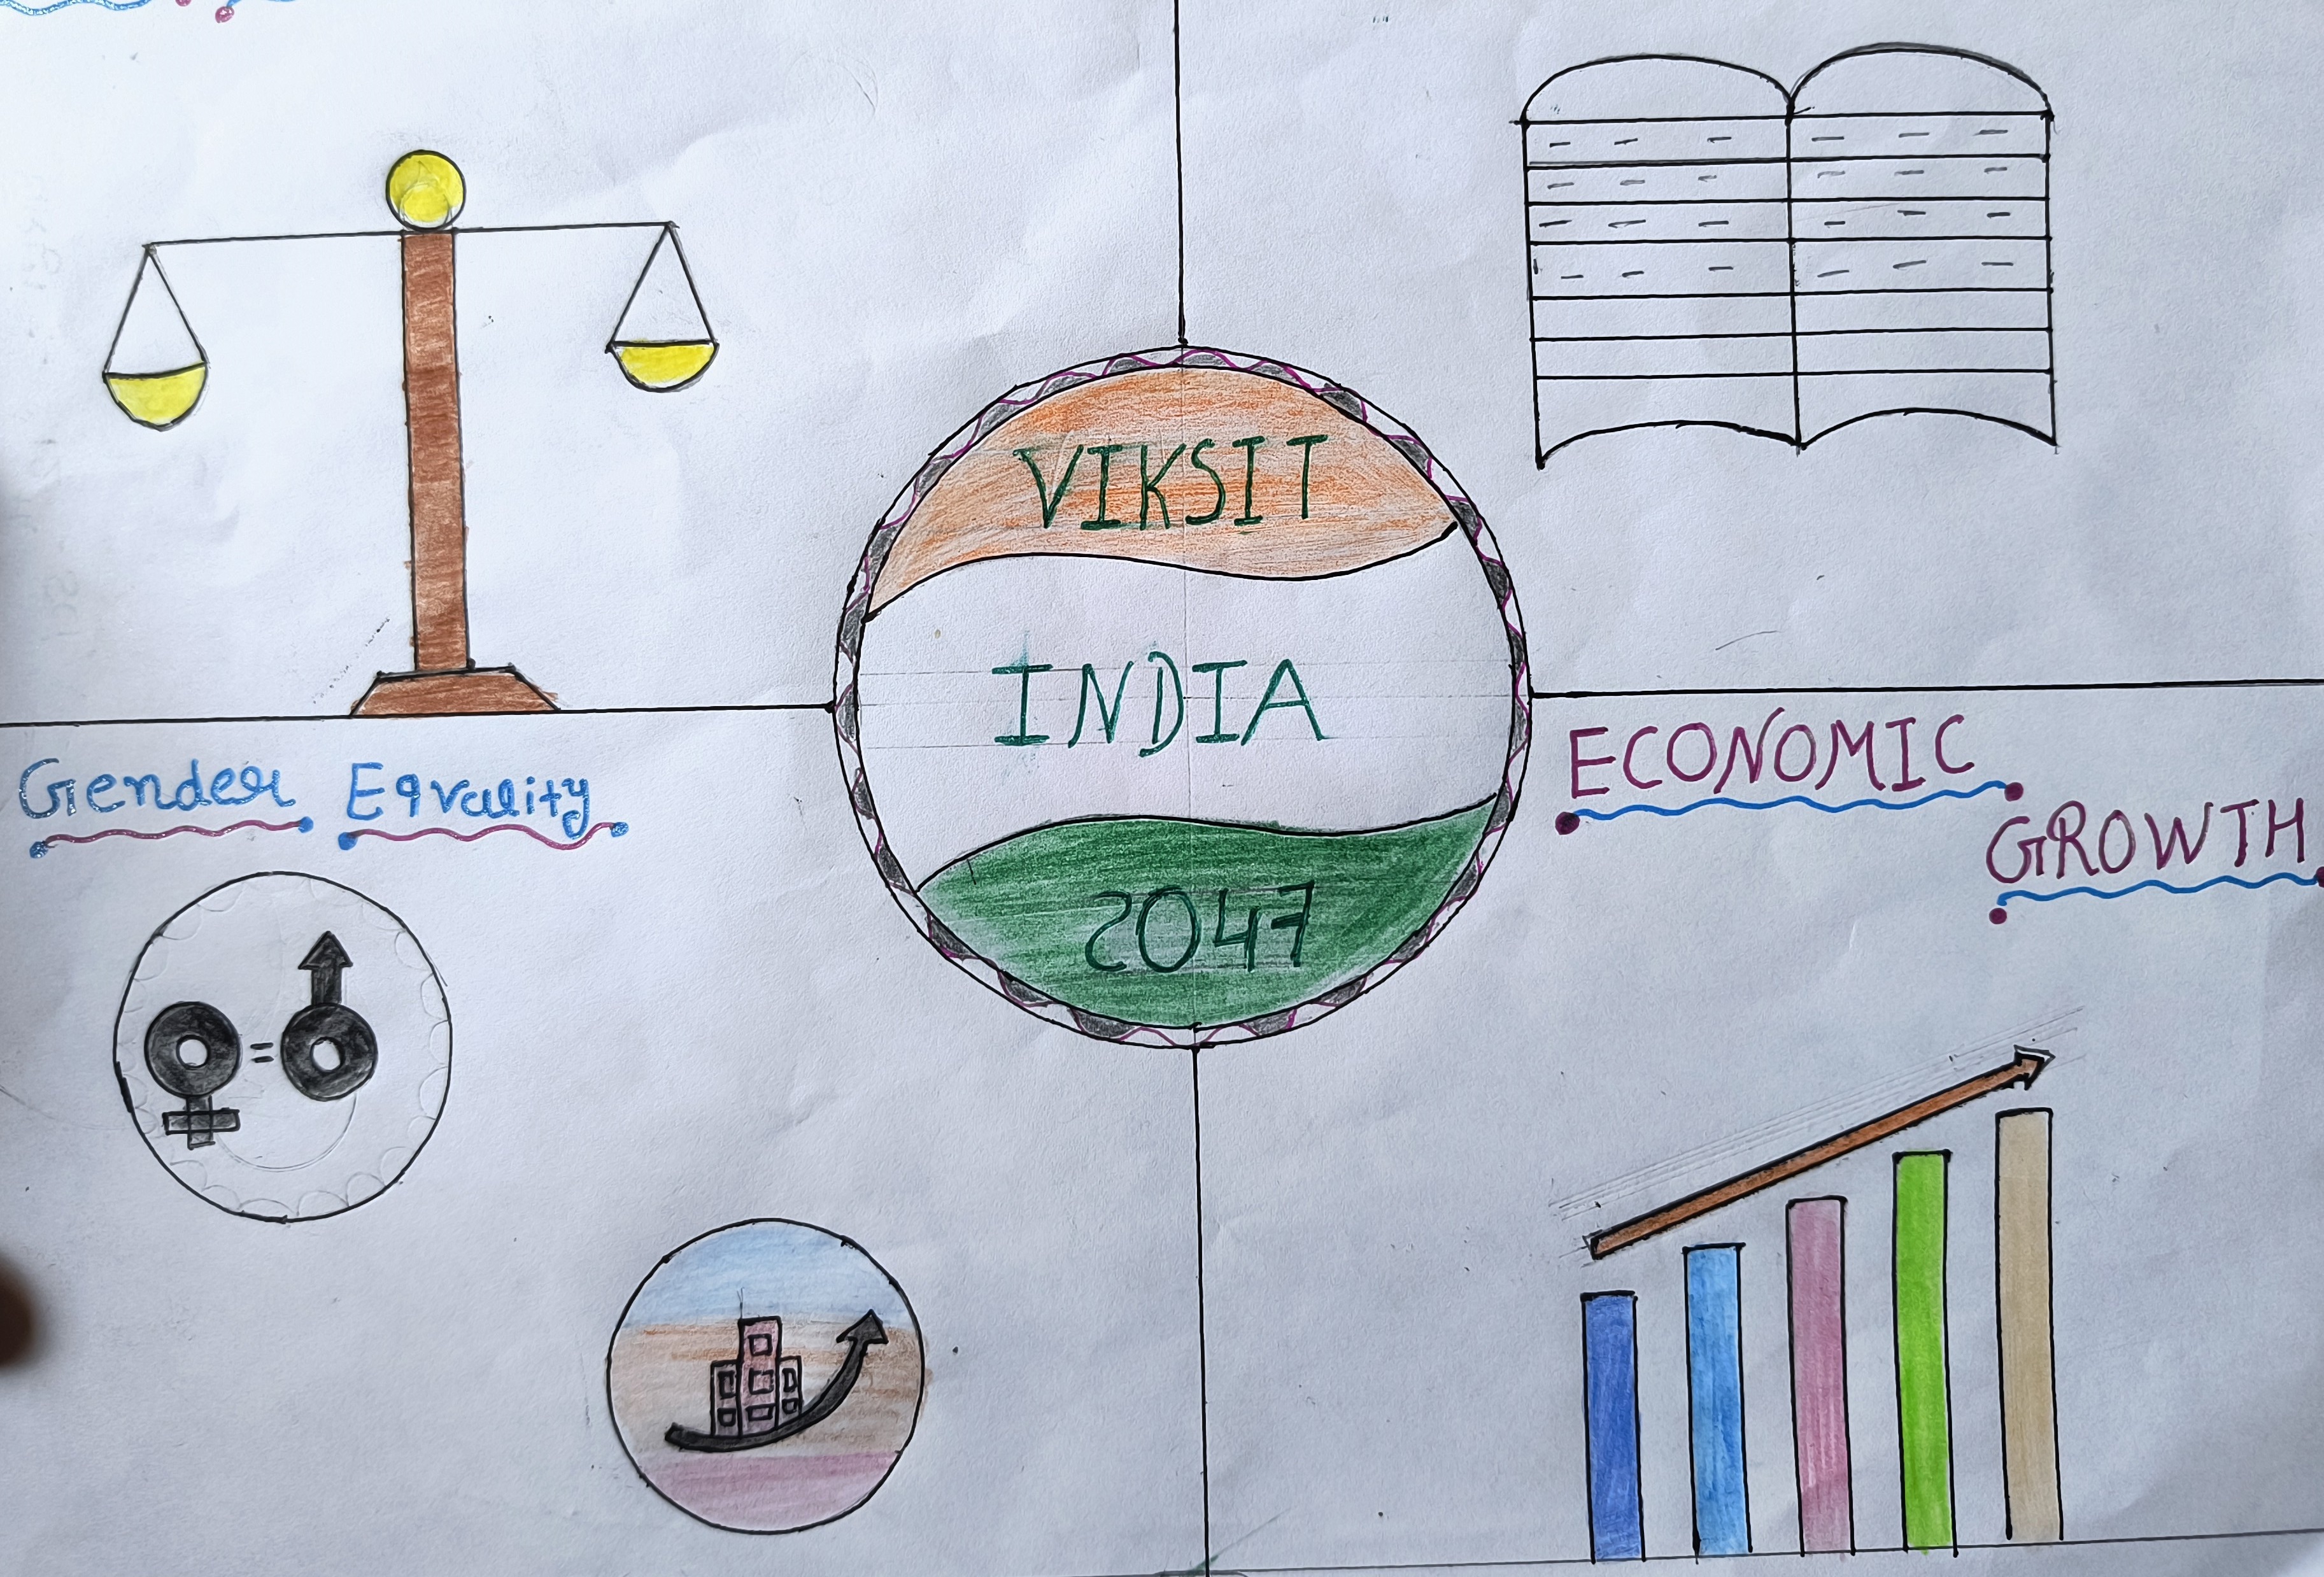 VIKSIT
INDIA
2047
Gender Equality
ECONOMIC
GROWTH